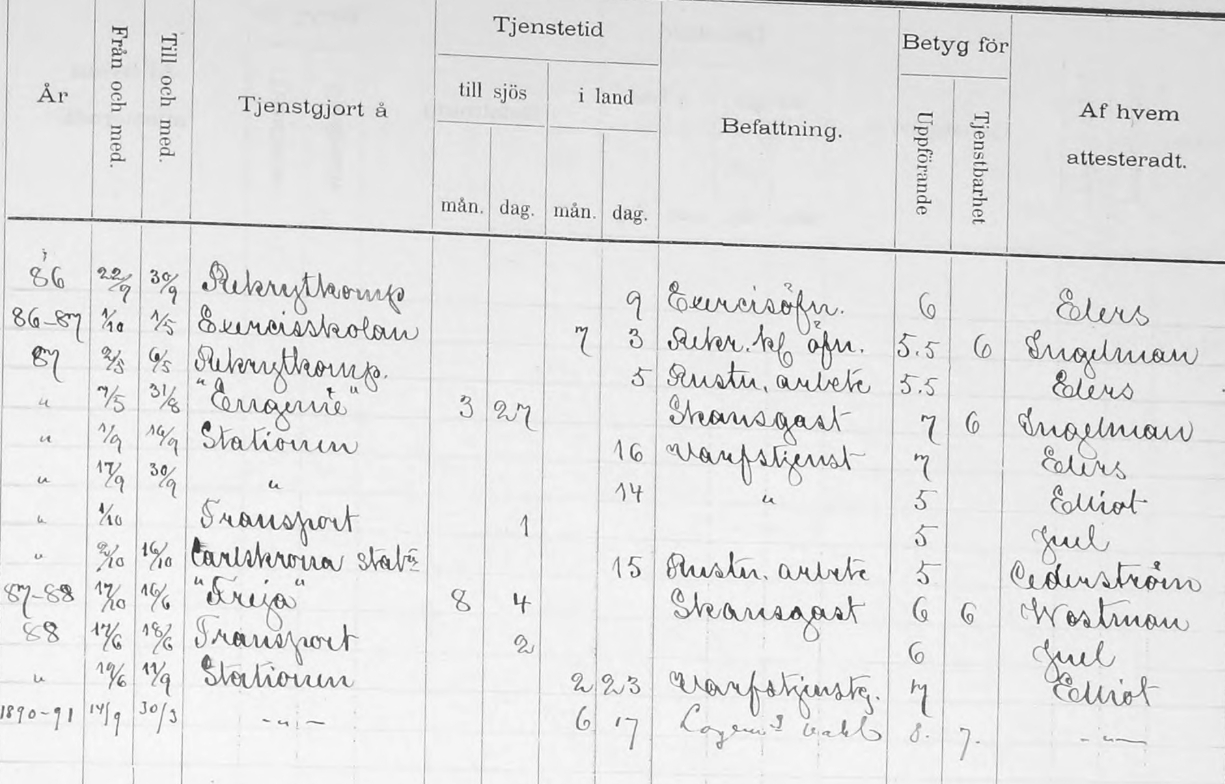 År Från och med. Till och med. Tjenstgjort å Tjenstetid Befattning. Betyg för Af hvem attesteradt.
till sjös i land Uppförande Tjenstbarhet
mån. dag. mån. dag.
86 22/9 30/9 Rekrytkomp 9 Exercisöfn. 6 Elers
86-87 1/10 1/5 Exercisskolan 7 3 Rekr. öfn. 5.5 6 Ingelman
87 2/5 6/5 Rekrytkomp. 5 Rustn. arbete 5.5 Elers
" 7/5 31/8 "Eugenie" 3 27 Skansgast 7 6 Ingelman
" 1/9 16/9 Stationen 16 Varfstjenst 7 Elers
" 17/9 30/9 " 14 " 5 Elliot
" 1/10 Transport 1 5 Juel
" 2/10 16/10 Carlskrona Statn 15 Rustn. arbete 5 Cederström
87-88 17/10 16/6 "Freja" 8 4 Skansgast 6 6 Wostman
88 17/6 18/6 Transport 2 6 Juel
" 19/6 11/9 Stationen 2 23 Varfstjenstg. 7 Elliot
1890-91 14/9 30/3 -"- 6 17 8. 7. -"-